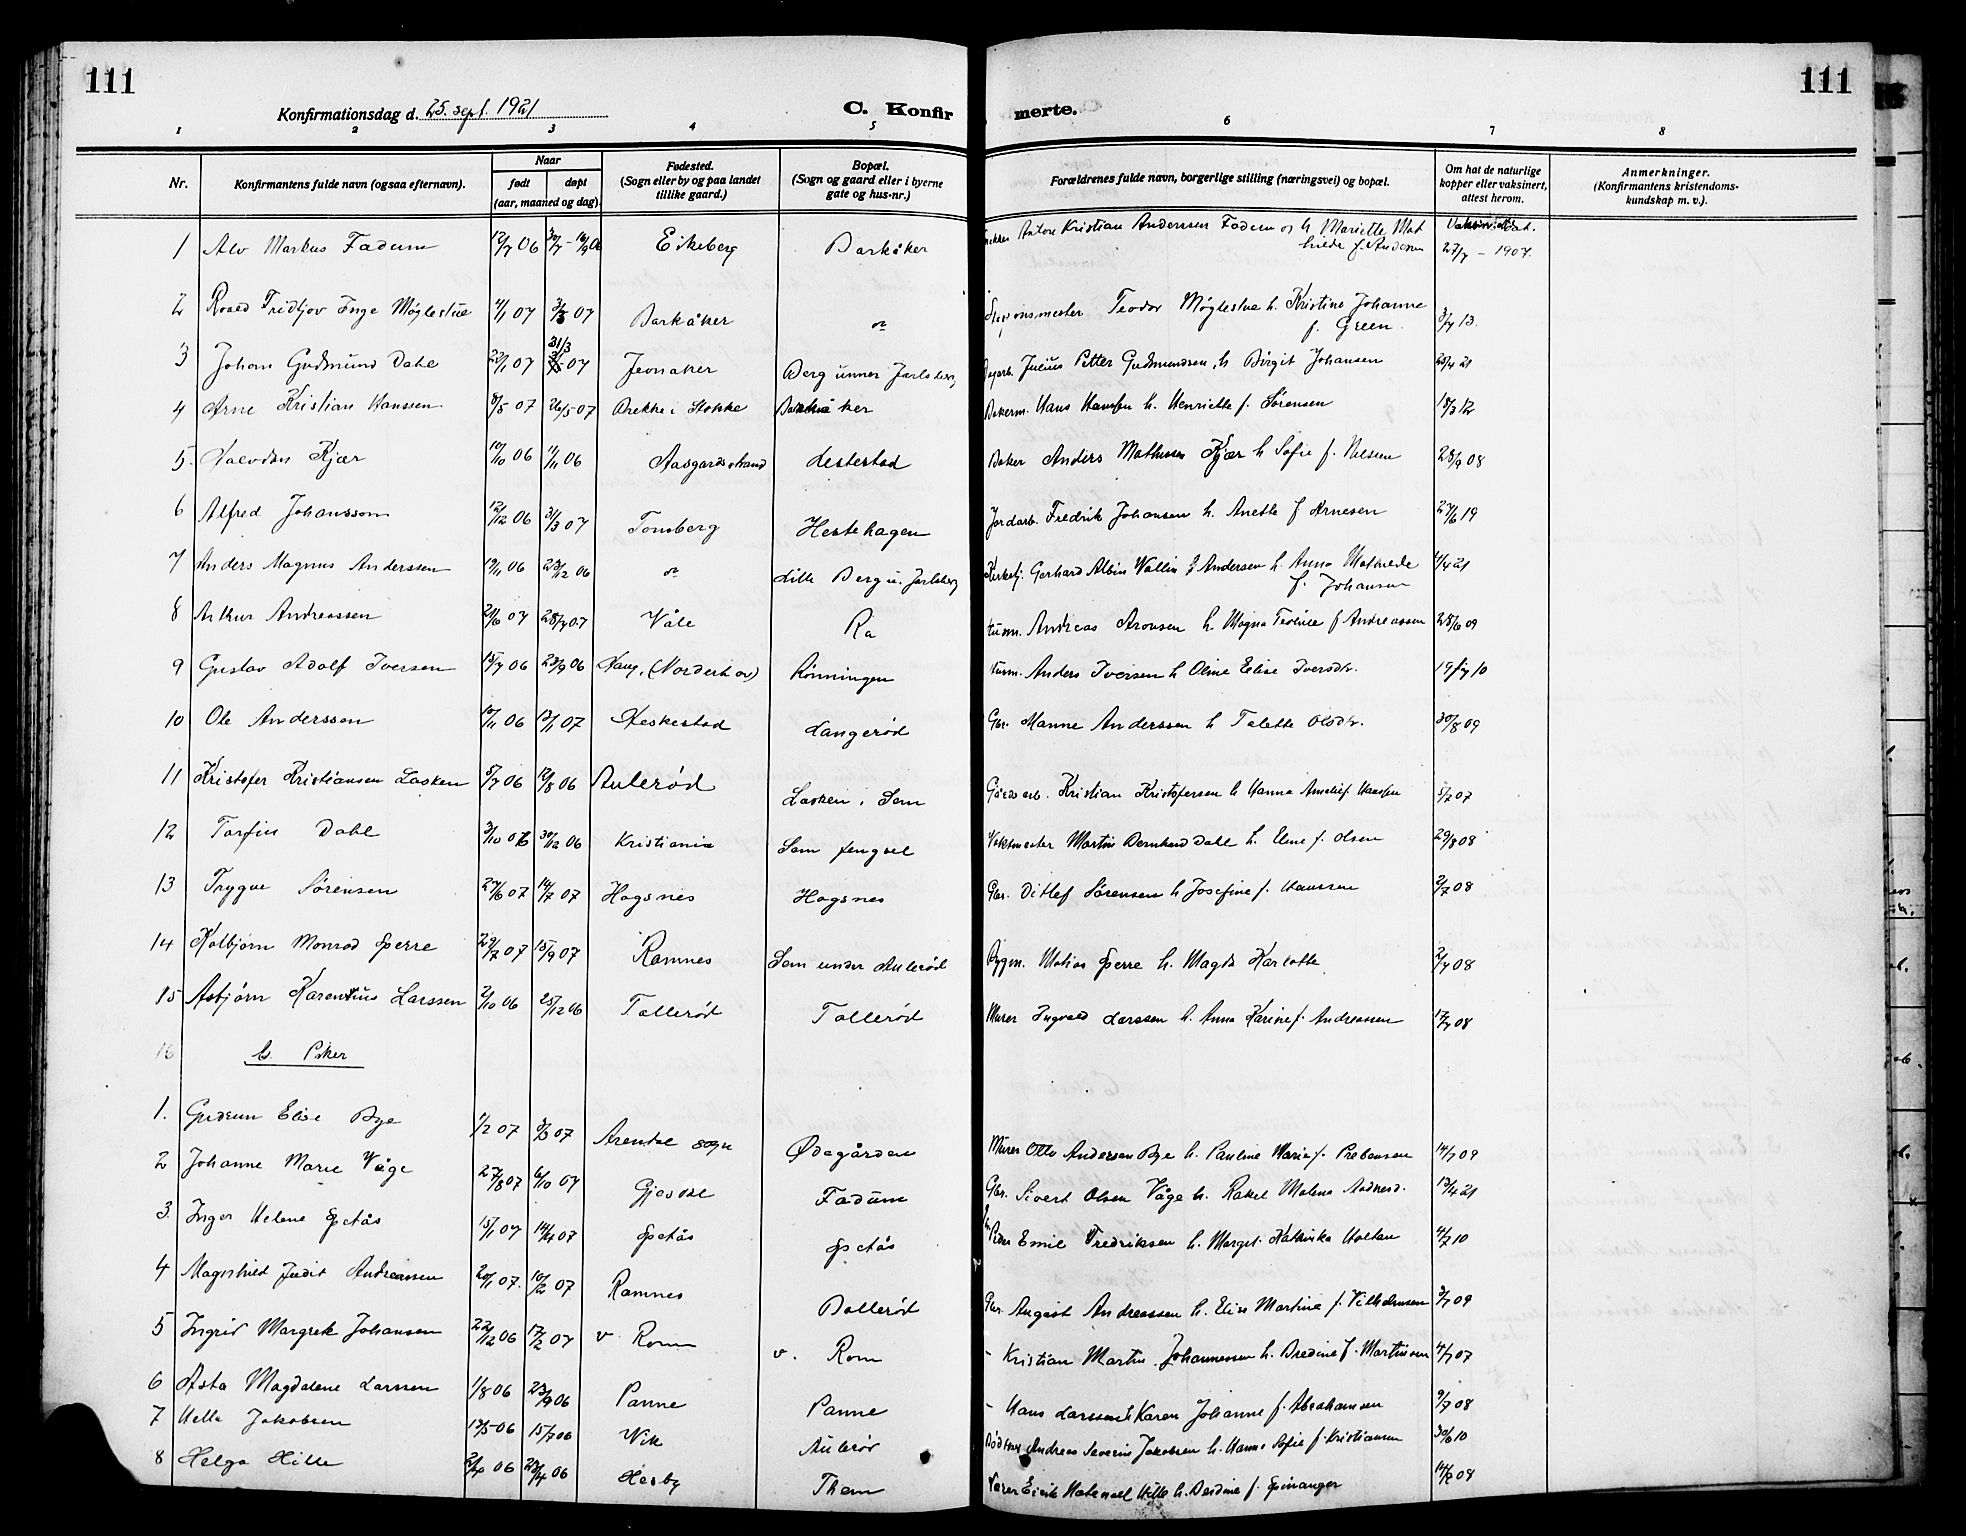 111
111
Konfirmationsdag d. 25. sept. 1921
C. Konfir merte.
1 2 3 4 5 6 7 8
Nr.
Konfirmantens fulde navn (ogsaa efternavn).
Naar
født døpt
(aar, maaned og dag).
Fødested.
(Sogn eller by og paa landet
tillike gaard.)
Bopæl.
(Sogn og gaard eller i byerne
gate og hus-nr.)
Forældrenes fulde navn, borgerlige stilling (næringsvei) og bopæl.
Om hat de naturlige
kopper eller vaksinert,
attest herom.
Anmerkninger.
(Konfirmantens kristendoms-
kundskap m. v.).
1 Alv Markus Fadum 12/7 06 Eikeberg Barkåker Anton Kristian Andersen Fadum og h. Mariette Mat
hilde f. Andersen 27/7 - 1907.
2 Roald Fridtjov Inge Møglestue 4/1 07 3/3 07 Barkåker Teodor Møglestue h. Kristine Johanne
f. Green. 3/7 13.
31/3
3 Johan Gudmund Dahl 22/1 07 07 Jevnaker Berg under Jarlsberg Julius Petter Gudmundsen, h. Birgit Johansen 21
4 Arne Kristian Hanssen 8/5 07 26/5 07 Brekke i Stokke Barkåker Bakerm. Hans Hanssen h. Henriette f. Sørensen 18/3 12
5. Halvdan Kjær 10/10 06 11/11 06 Aasgaardsstrand Lestestad Baker Anders Mathisen Kjær h. Sofie f. Nielsen 28/9 08
6 Alfred Johanssom 12/12 06 31/3 07 Tønsberg Hestehagen Jordarb. Fredrik Johansen h. Anette f. Arnesen 27/6 19
7 Anders Magnus Anderssen 19/11 06 23/12 06 Lille Berg u. Jarlsberg Kirketj. Gerhard Albin Wallin Andersen h. Anna Mathilde
f. Johansen 4/4 21
8 Arthur Andreassen 21/6 07 28/7 07 Våle Ra Husm. Andreas Aronsen h. Magna Teoline f. Andreassen 28/6 09
9 Gustav Adolf Iversen 15/7 06 23/9 06 Haug, (Norderhov) Rønningen Husm. Anders Iversen h. Oline Elise Iversdtr. 10
10 Ole Anderssen 10/11 06 13/1 07 Heskestad Langerød Gbr. Manne Anderssen h. Talette Olsdtr. 30/8 09
11 Kristofer Kristiansen Lasken 5/7 06 12/8 06 Aulerød Lasken i Sem Gårdsarb. Kristian Kristofersen h. Hanna Amalie f. Hanssen 5/7 07
12 Torfin Dahl 3/10 06 30/12 06 Kristiania Sem fengsel Vaktmester Martin Bernhard Dahl h. Elene f. Olsen 29/8 08
13 Trygve Sørensen 27/6 07 14/7 07 Hogsnes Hogsnes Gbr. Ditlef Sørensen h. Josefine f. Hanssen 2/7 08
14 Kolbjørn Monrad Sperre 29/7 07 15/9 07 Ramnes Sem under Aulerød Bygm. Matias Sperre h. Magda Karlotte 2/7 08
15 Asbjørn Karentius Larssen 2/10 06 25/12 06 Tallerød Tallerød Murer Ingvald Larssen h. Anna Karine f. Andreassen 17/7 08
16 b. Piker
1. Gudrun Elise Bye 1/2 07 3/3 07 Arendal sogn Ødegården Murer Otto Andersen Bye h. Pauline Marie f. Prebensen 14/7 09
2 Johanne Marie Våge 27/8 07 6/10 07 Gjesdal Fadum Gbr. Sivert Olsen Våge h. Rakel Malene 13/4 21
3. Inger Helene Spetås 15/1 07 14/4 07 Spetås Spetås Emil Fredriksen h. Marget Kathinka Holtan 4/7 10
4 Magnhild Judit Andreassen 20/1 07. 10/2 07 Ramnes Bollerød Gbr. August Andreassen h. Elise Martine f. Vilhelmsen 3/7 09
5 Ingrid Margrete Johansen 22/12 06 17/2 07 v. Rom v. Rom - Kristian Martin Johannessen h. Bredine f. Martinsen 4/7 07
6 Asta Magdalene Larssen 1/8 06 23/9 06 Panne Panne - Hans Larssen h. Karen Johanne f. Abrahamsen 9/7 08
7 Hella Jakobsen 13/5 06 15/7 06 Vik Aulerød Andreas Severin Jakobsen h. Hanna Sofie f. Kristiansen 30/6 10
8 Helga Hille 2/4 06 23/4 06 Hesby Them Lærer Eirik Natanael Hille h. Berdine f. Spinanger 14/8 08